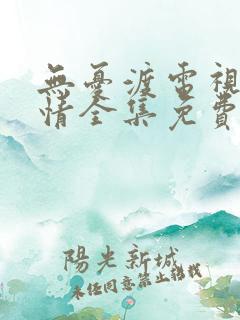 無憂渡電視
情全集免費
陽光新城
未经同意禁止转载